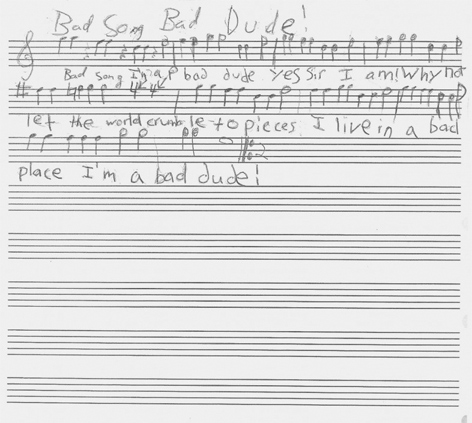 Bad Song Bad Dude!
Bad song I'm a bad dude yes sir I am! Why not
let the world crumble to pieces I live in a bad
place I'm a bad dude!